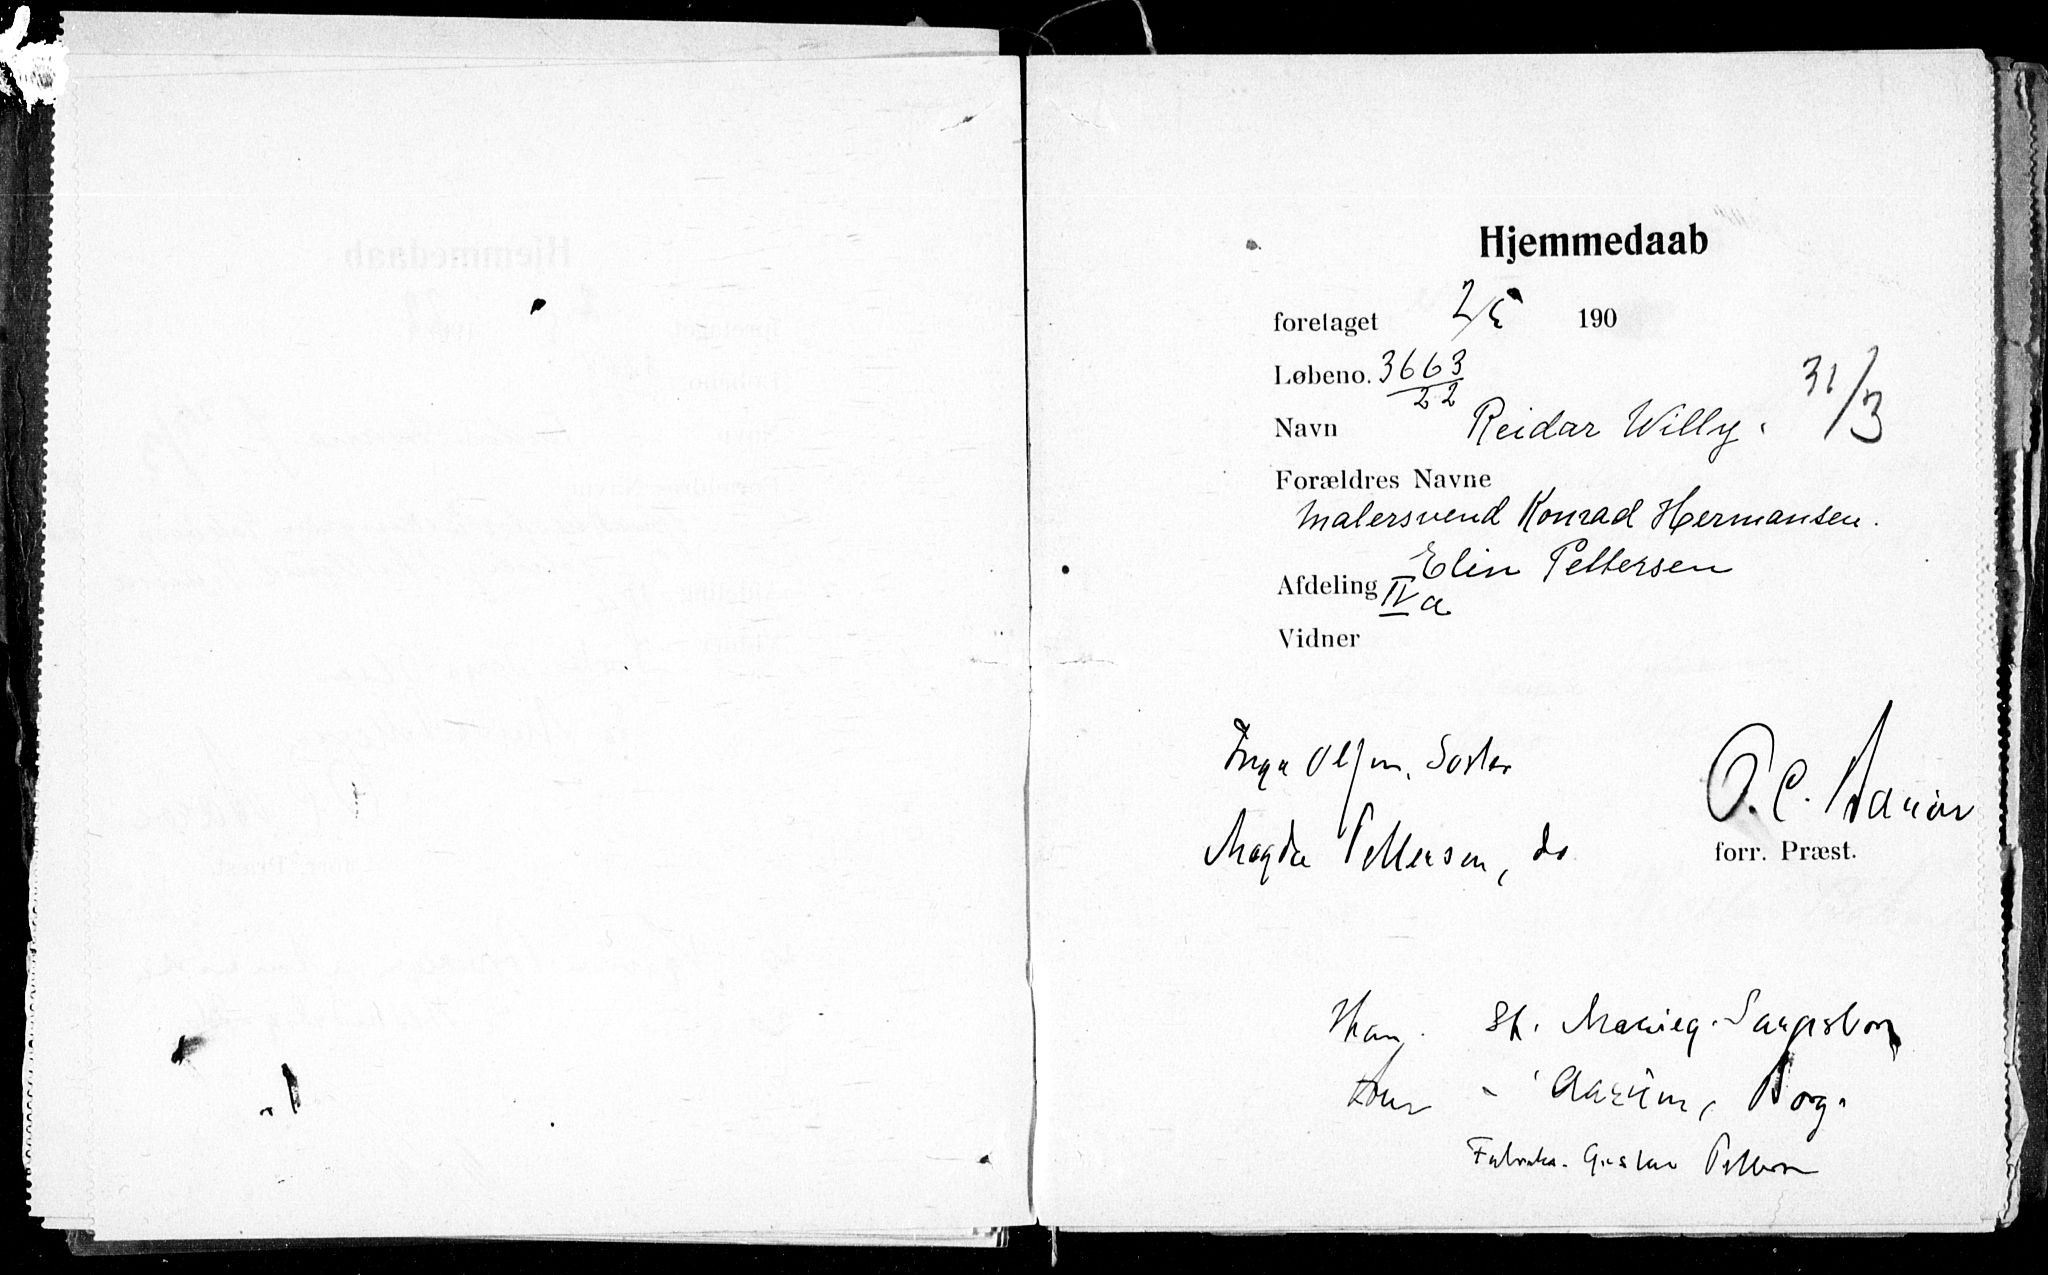 Hjemmedaab
foretaget 2/5 190
Løbeno. 3663/22
Navn Reidar Willy. 31/3
Forældres Navne
Malersvend Konrad Hermansen.
Elin Pettersen
Afdeling IV a
Vidner
Inga Olsen, Søster
Magda Pettersen, do
O. C.
forr. Præst.
Han St. Marieg. Sarpsborg
Hun - Aarum, Borg.
Gustav Pettersen